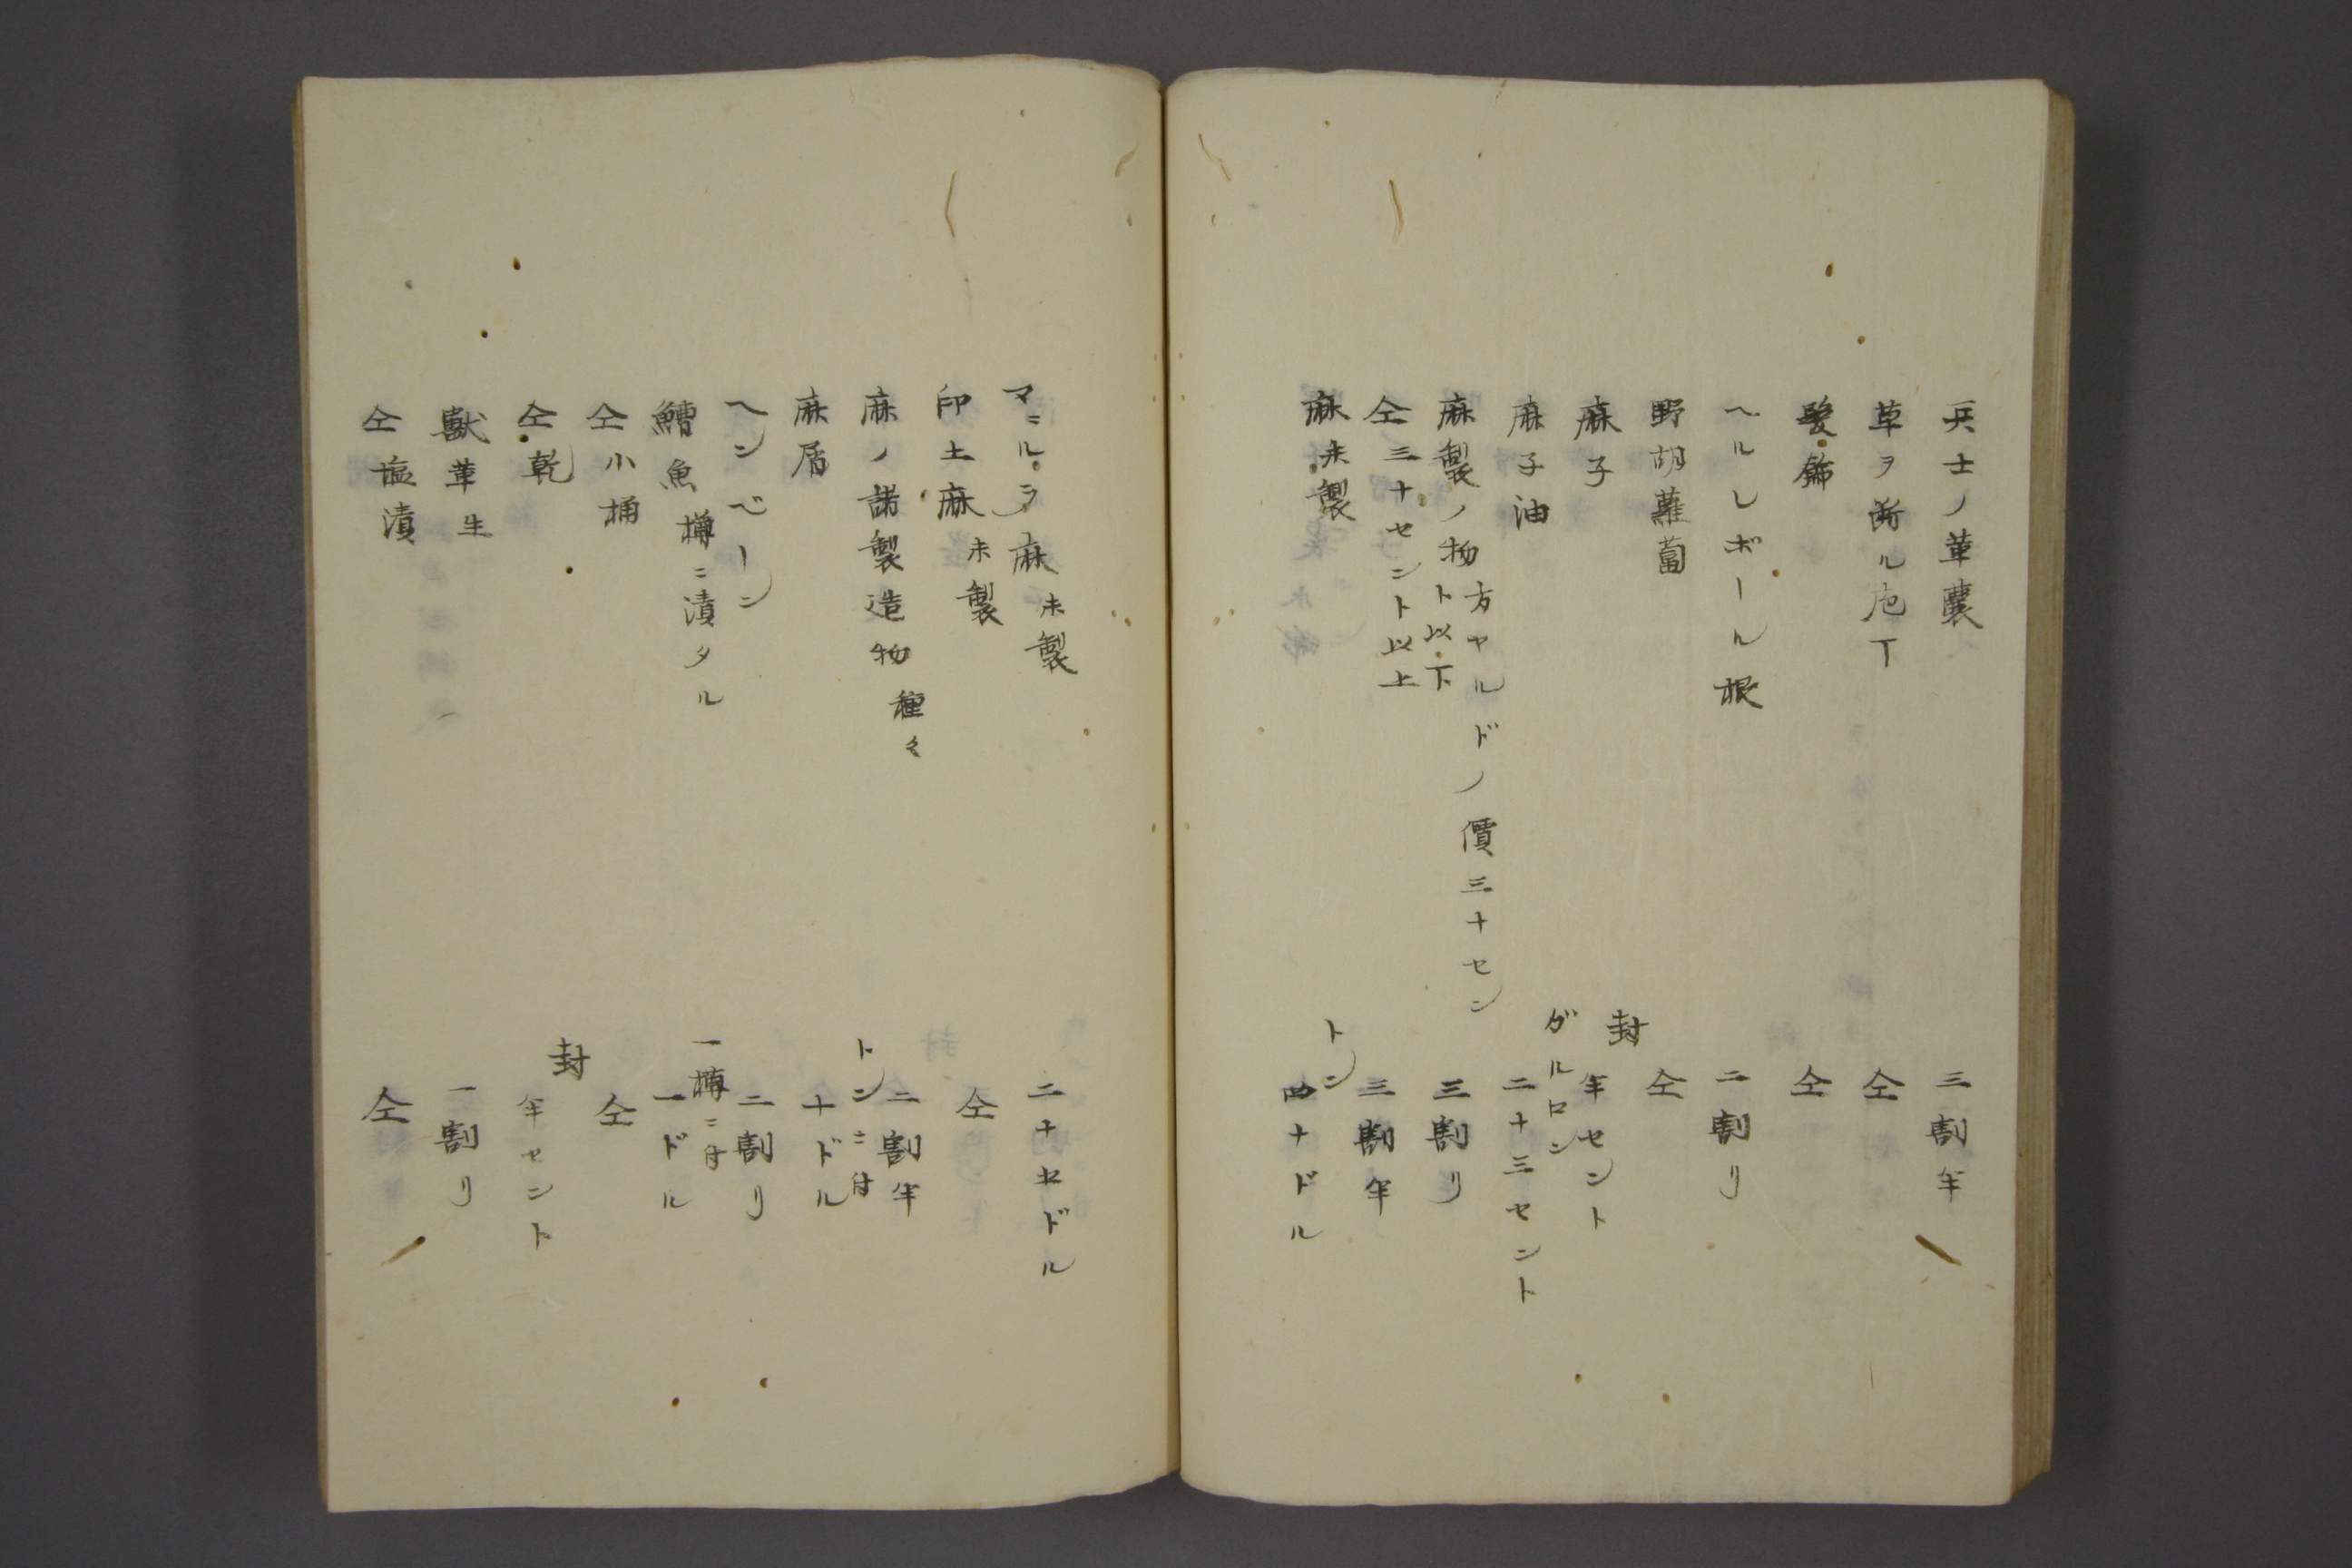 兵士ノ革嚢 三割半
草ヲ断ル庖丁 仝
髪飾 仝
ヘルレボール根 二割リ
野胡蘿蔔 仝
麻子 封 半セント
麻子油 ガルロン 二十三セント
麻製ノ物 方ヤルドノ價三十セント以下 三割リ
仝 三十セント以上 三割半
麻 未製 トン 四十ドル
マニルラ麻 未製 二十五ドル
印土麻 未製 仝
麻ノ諸製造物 種々 二割半
麻屑 トンニ付 十ドル
ヘンベーン 二割リ
鰽魚樽ニ漬タル 一樽ニ付 一ドル
仝小桶 仝
仝乾 封 半セント
獣革 生 一割リ
仝塩漬 仝